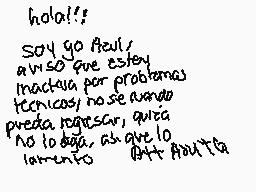 hola!!!
soy yo Azul,
aviso que estoy
inactiva por problemas
tecnicos, no se cuando
pueda regresar, quizá
no lo haga, asi que lo
lamento Att Azulita